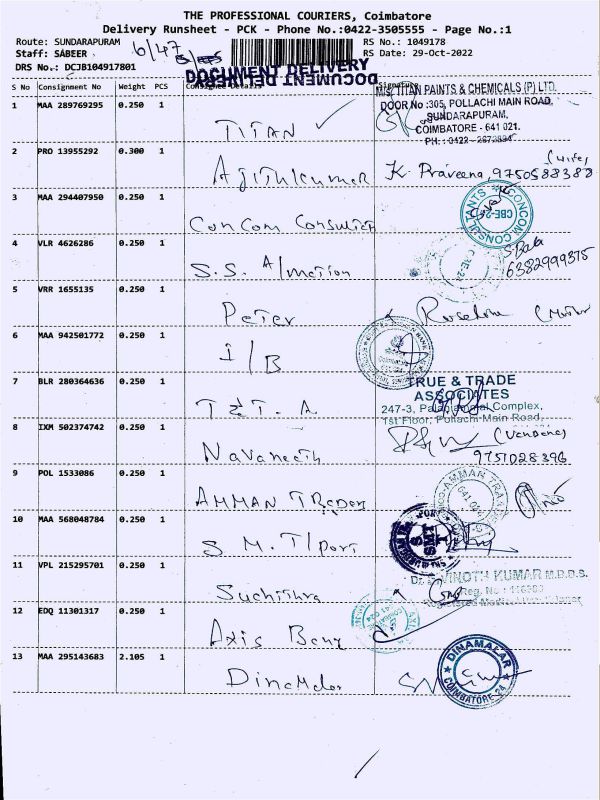 THE PROFESSIONAL COURIERS, Coimbatore
Delivery Runsheet - PCK - Phone No.:0422-3505555 - Page No.:1
Route: SUNDARAPURAM
Staff: SABEER
DRS No.: DCJB104917801
6/47
RS No.: 1049178
RS Date: 29-Oct-2022
DOCUMENT DELIVERY
DOCUMENT DELIVERY
S No Consignment No Weight PCS Consignee Details Signature
M/s TITAN PAINTS & CHEMICALS (P) LTD.
DOOR No :305, POLLACHI MAIN ROAD,
SUNDARAPURAM,
COIMBATORE - 641 021.
PH. : 0422 - 2672334
1 MAA 289769295 0.250 1 TITAN ✓
2 PRO 13955292 0.300 1 Ajithkumar K. Praveena, 9750588388 (wife)
3 MAA 294407950 0.250 1 ConCom Consultan
CONCOM CONSULTANTS CBE-24
4 VLR 4626286 0.250 1 S.S. A/mation
S. Bala
6382999375
5 VRR 1655135 0.250 1 Peter
6 MAA 942501772 0.250 1 I/B
7 BLR 280364636 0.250 1 T & T. A
TRUE & TRADE
ASSOCIATES
247-3, Palaniammal Complex,
1st Floor, Pollachi Main Road,
8 IXM 502374742 0.250 1 Navaneeth (Vandana)
9751028396
9 POL 1533086 0.250 1 AMMAN Trader
AMMAN TRA
641 024
10 MAA 568048784 0.250 1 S. M. T/port
SMT
11 VPL 215295701 0.250 1 Suchithra
VINOTH KUMAR M.B.B.S.
Reg. No :
12 EDQ 11301317 0.250 1 Axis Bank
13 MAA 295143683 2.105 1 Dinamalar
DINAMALAR
COIMBATORE-24